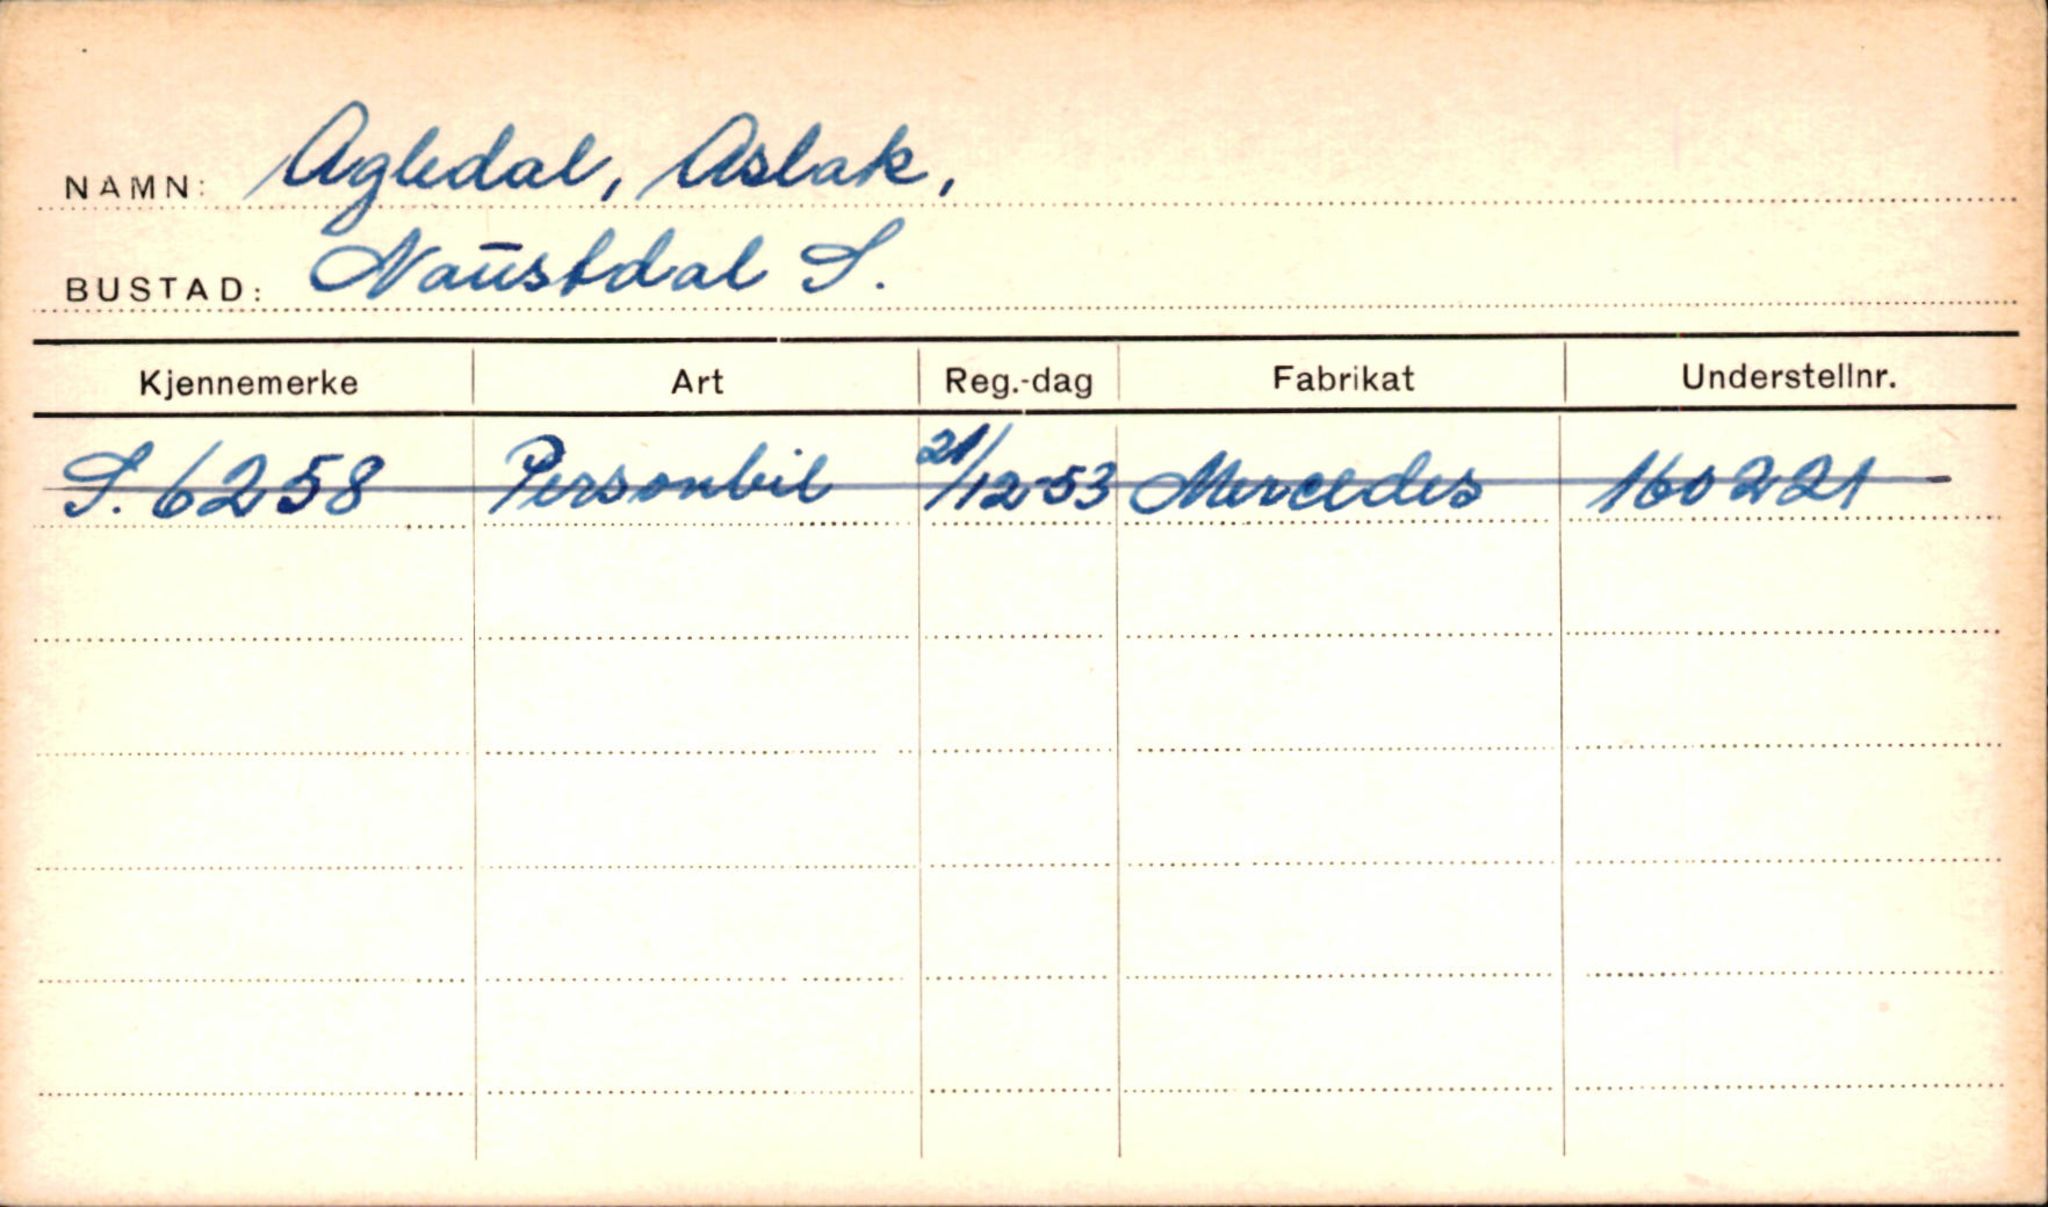 NAMN: Agledal, Aslak,
BUSTAD: Naustdal S.
Kjennemerke Art Reg.-dag Fabrikat Understellnr.
S. 6258 Personbil 21/12-53 Mercedes 160221